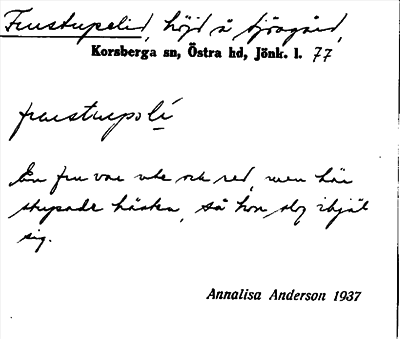 Frustupelid, höjd å Sjöagård,
Korsberga sn, Östra hd, Jönk. l. 77
frustupəlí
En fru var ute och red, men här
stupade hästen, så hon slog ihjäl
sig.
Annalisa Anderson 1937